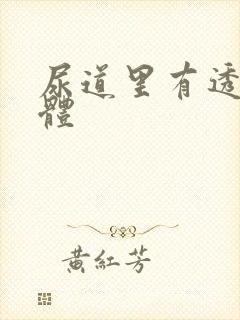 尿道里有透
體
黄紅芳